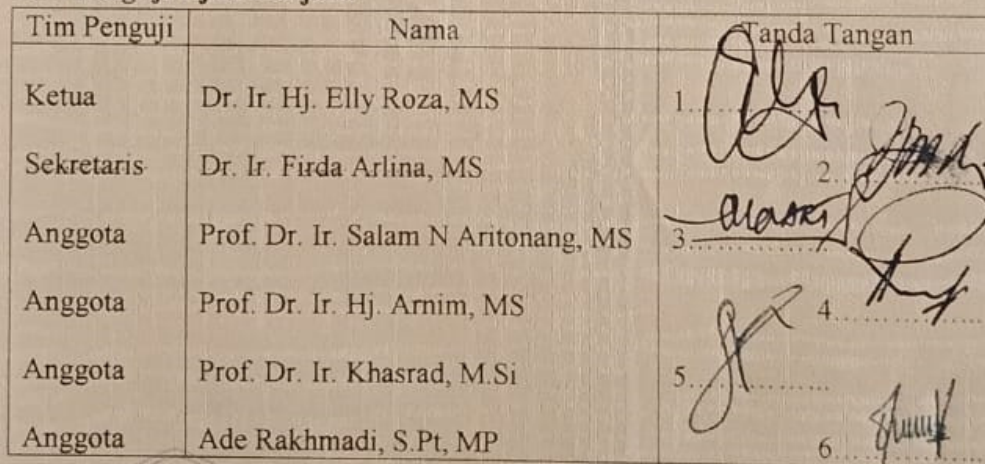 Tim Penguji Nama Tanda Tangan
Ketua Dr. Ir. Hj. Elly Roza, MS 1..............
Sekretaris Dr. Ir. Firda Arlina, MS 2..............
Anggota Prof. Dr. Ir. Salam N Aritonang, MS 3..............
Anggota Prof. Dr. Ir. Hj. Arnim, MS 4..............
Anggota Prof. Dr. Ir. Khasrad, M.Si 5..............
Anggota Ade Rakhmadi, S.Pt, MP 6..............